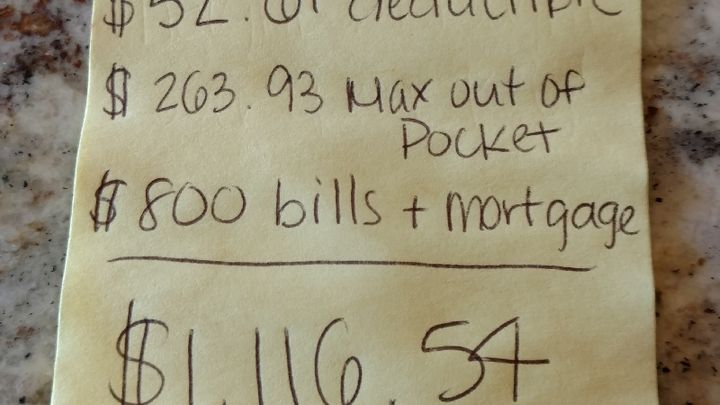 $52.61 deductible
$263.93 Max out of
Pocket
$800 bills + mortgage
$1,116.54